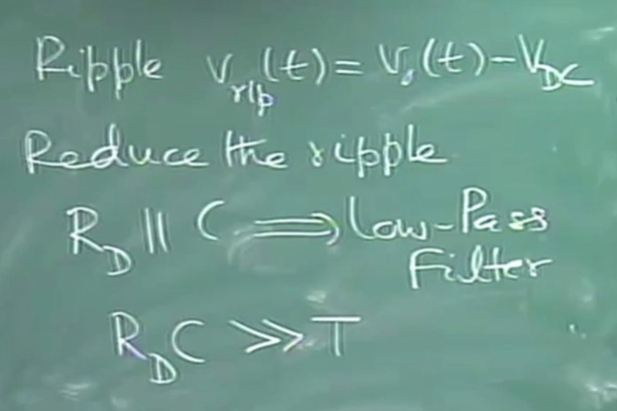 Ripple v_rlp(t) = v_o(t) - V_DC
Reduce the ripple
R_D || C ⟹ Low-Pass
Filter
R_D C >> T